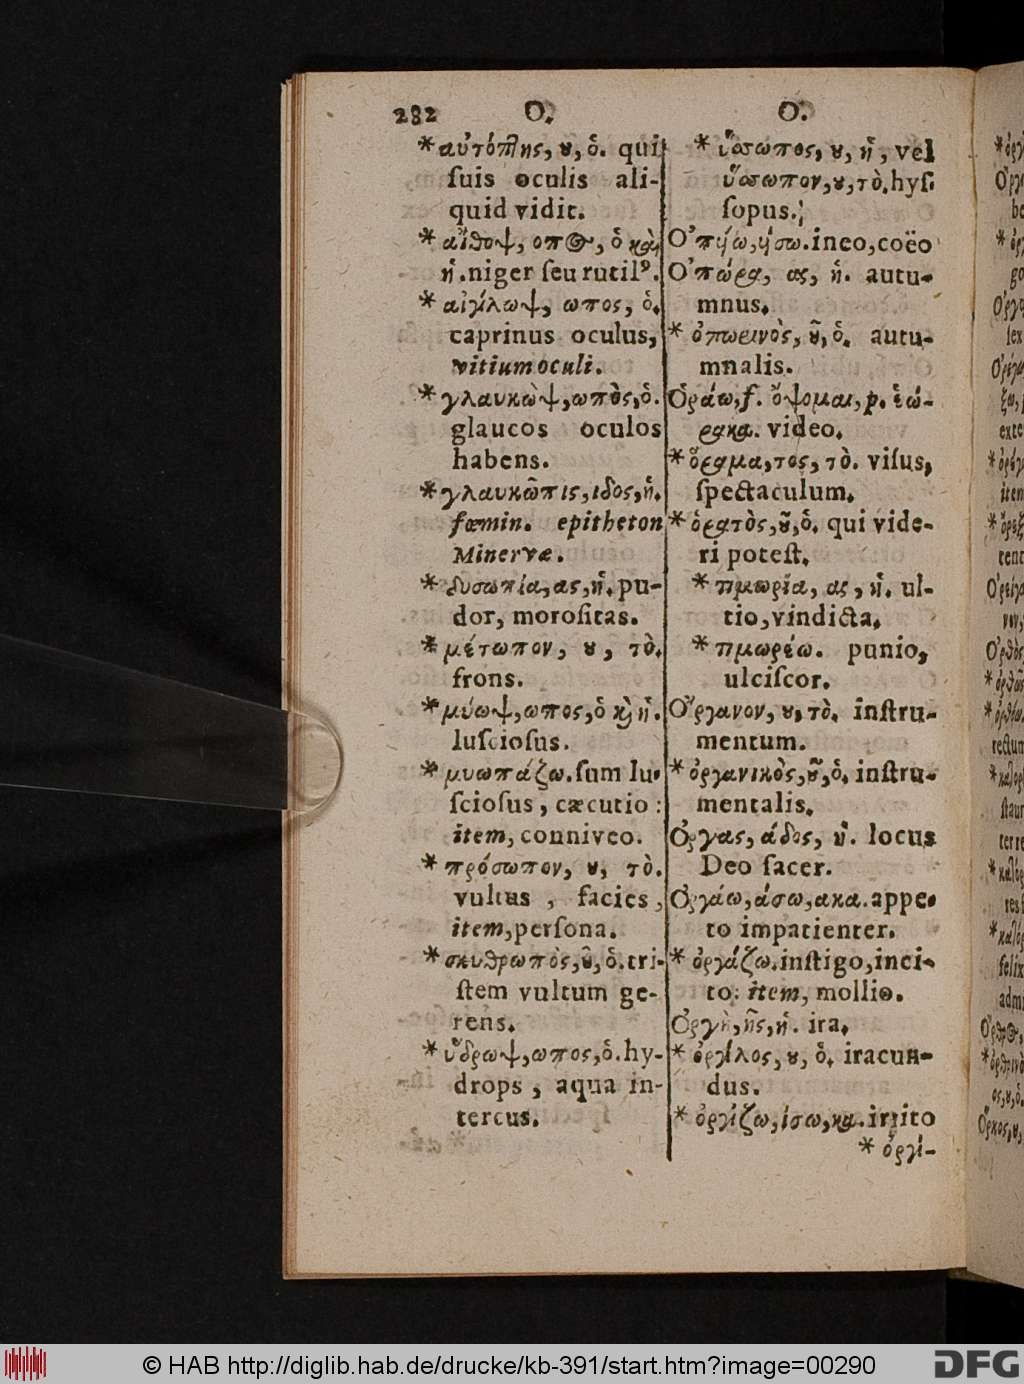 282 O. O.
*αὐτόπτης, ου, ὁ. qui
suis oculis ali-
quid vidit.
*αἶθοψ, οπος, ὁ καὶ
ἡ. niger seu rutil⁹.
*αἰγίλωψ, ωπος, ὁ.
caprinus oculus,
vitium oculi.
*γλαυκὼψ, ωπὸς, ὁ.
glaucos oculos
habens.
*γλαυκῶπις, ιδος, ἡ.
fœmin. epitheton
Minervæ.
*δυσωπία, ας, ἡ. pu-
dor, morositas.
*μέτωπον, ου, τὸ.
frons.
*μύωψ, ωπος, ὁ κὶ ἡ.
lusciosus.
*μυωπάζω. sum lu-
sciosus, cæcutio:
item, conniveo.
*πρόσωπον, ου, τὸ.
vultus, facies,
item, persona.
*σκυθρωπὸς, οῦ, ὁ. tri-
stem vultum ge-
rens.
*ὕδρωψ, ωπος, ὁ. hy-
drops, aqua in-
tercus.
*ὕσσωπος, ου, ἡ, vel
ὕσσωπον, ου, τὸ. hys-
sopus.
Ὀπύω, ύσω. ineo, coëo
Ὀπώρα, ας, ἡ. autu-
mnus.
*ὀπωρινὸς, οῦ, ὁ. autu-
mnalis.
Ὁράω, f. ὄψομαι, p. ἑώ-
ρακα. video.
*ὅραμα, τος, τὸ. visus,
spectaculum.
*ὁρατὸς, οῦ, ὁ. qui vide-
ri potest.
*τιμωρία, ας, ἡ. ul-
tio, vindicta.
*τιμωρέω. punio,
ulciscor.
Ὄργανον, ου, τὸ. instru-
mentum.
*ὀργανικὸς, οῦ, ὁ. instru-
mentalis.
Ὀργας, άδος, ἡ. locus
Deo sacer.
Ὀργάω, άσω, ακα. appe-
to impatienter.
*ὀργάζω. instigo, inci-
to: item, mollio.
Ὀργὴ, ῆς, ἡ. ira.
*ὀργίλος, ου, ὁ. iracun-
dus.
*ὀργίζω, ίσω, κα. irrito
*ὀργί-
© HAB http://diglib.hab.de/drucke/kb-391/start.htm?image=00290
DFG